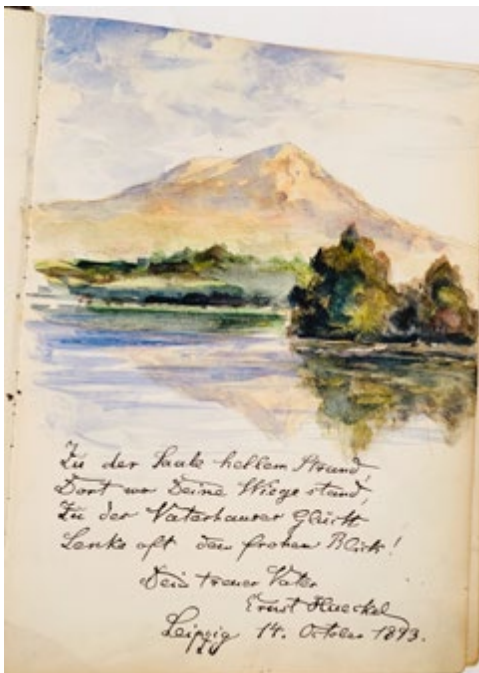 Zu der Saale hellem Strand,
Dort wo Deine Wiege stand,
Zu des Vaterhauses Glück
Lenke oft den frohen Blick!
Dein treuer Vater
Ernst Haeckel
Leipzig 14. October 1893.